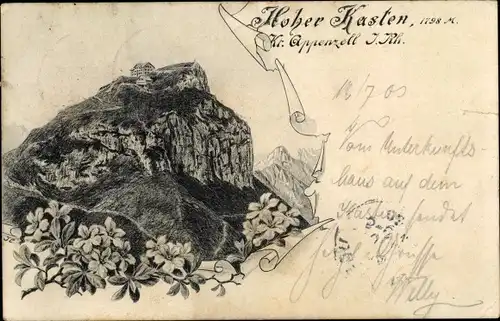 Hoher Kasten, 1798 M.
Kt. Appenzell I. Rh.
Vom Unterkunfts-
haus auf dem
Kasten sendet
Grüsse
Willy